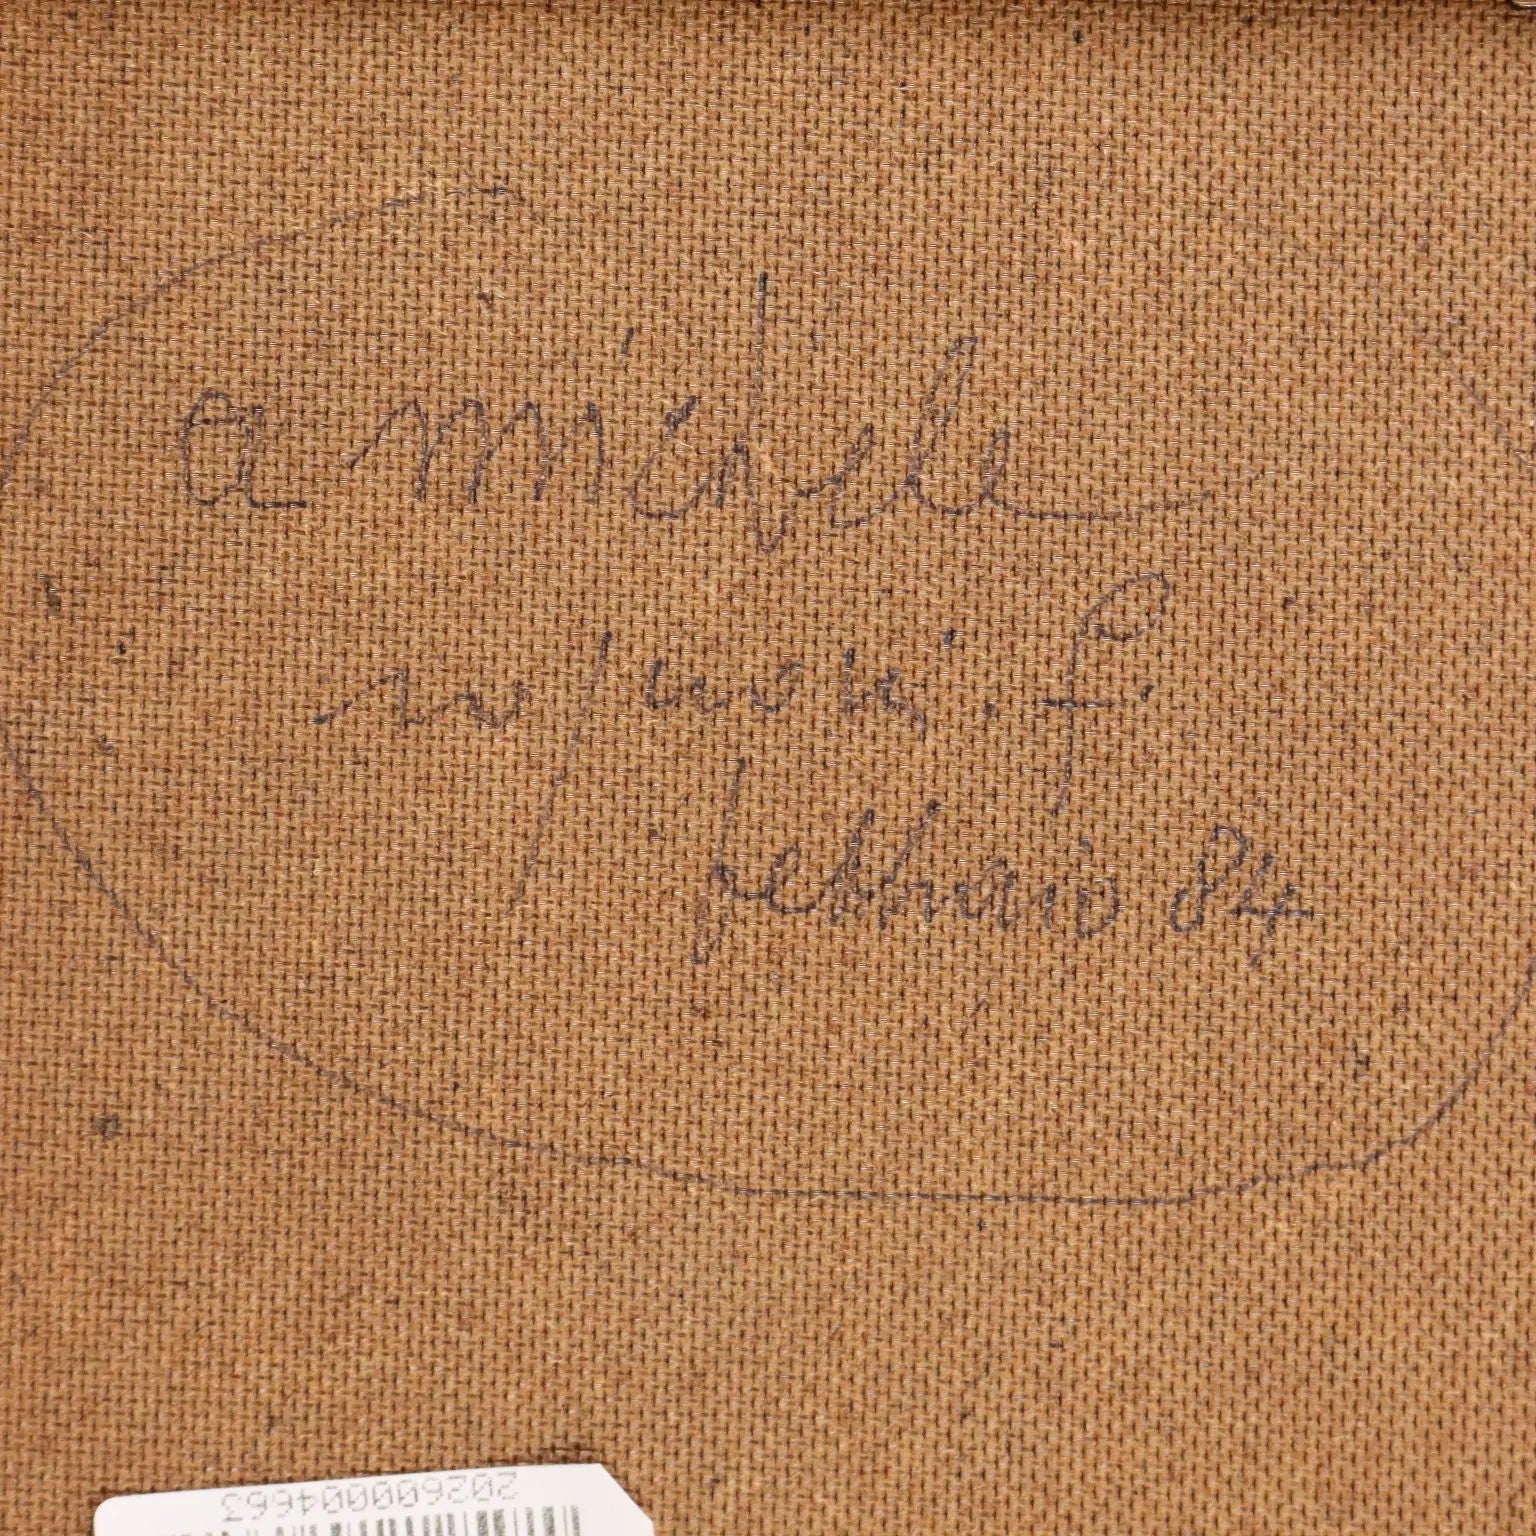 a michele
febbraio 84
202600004663